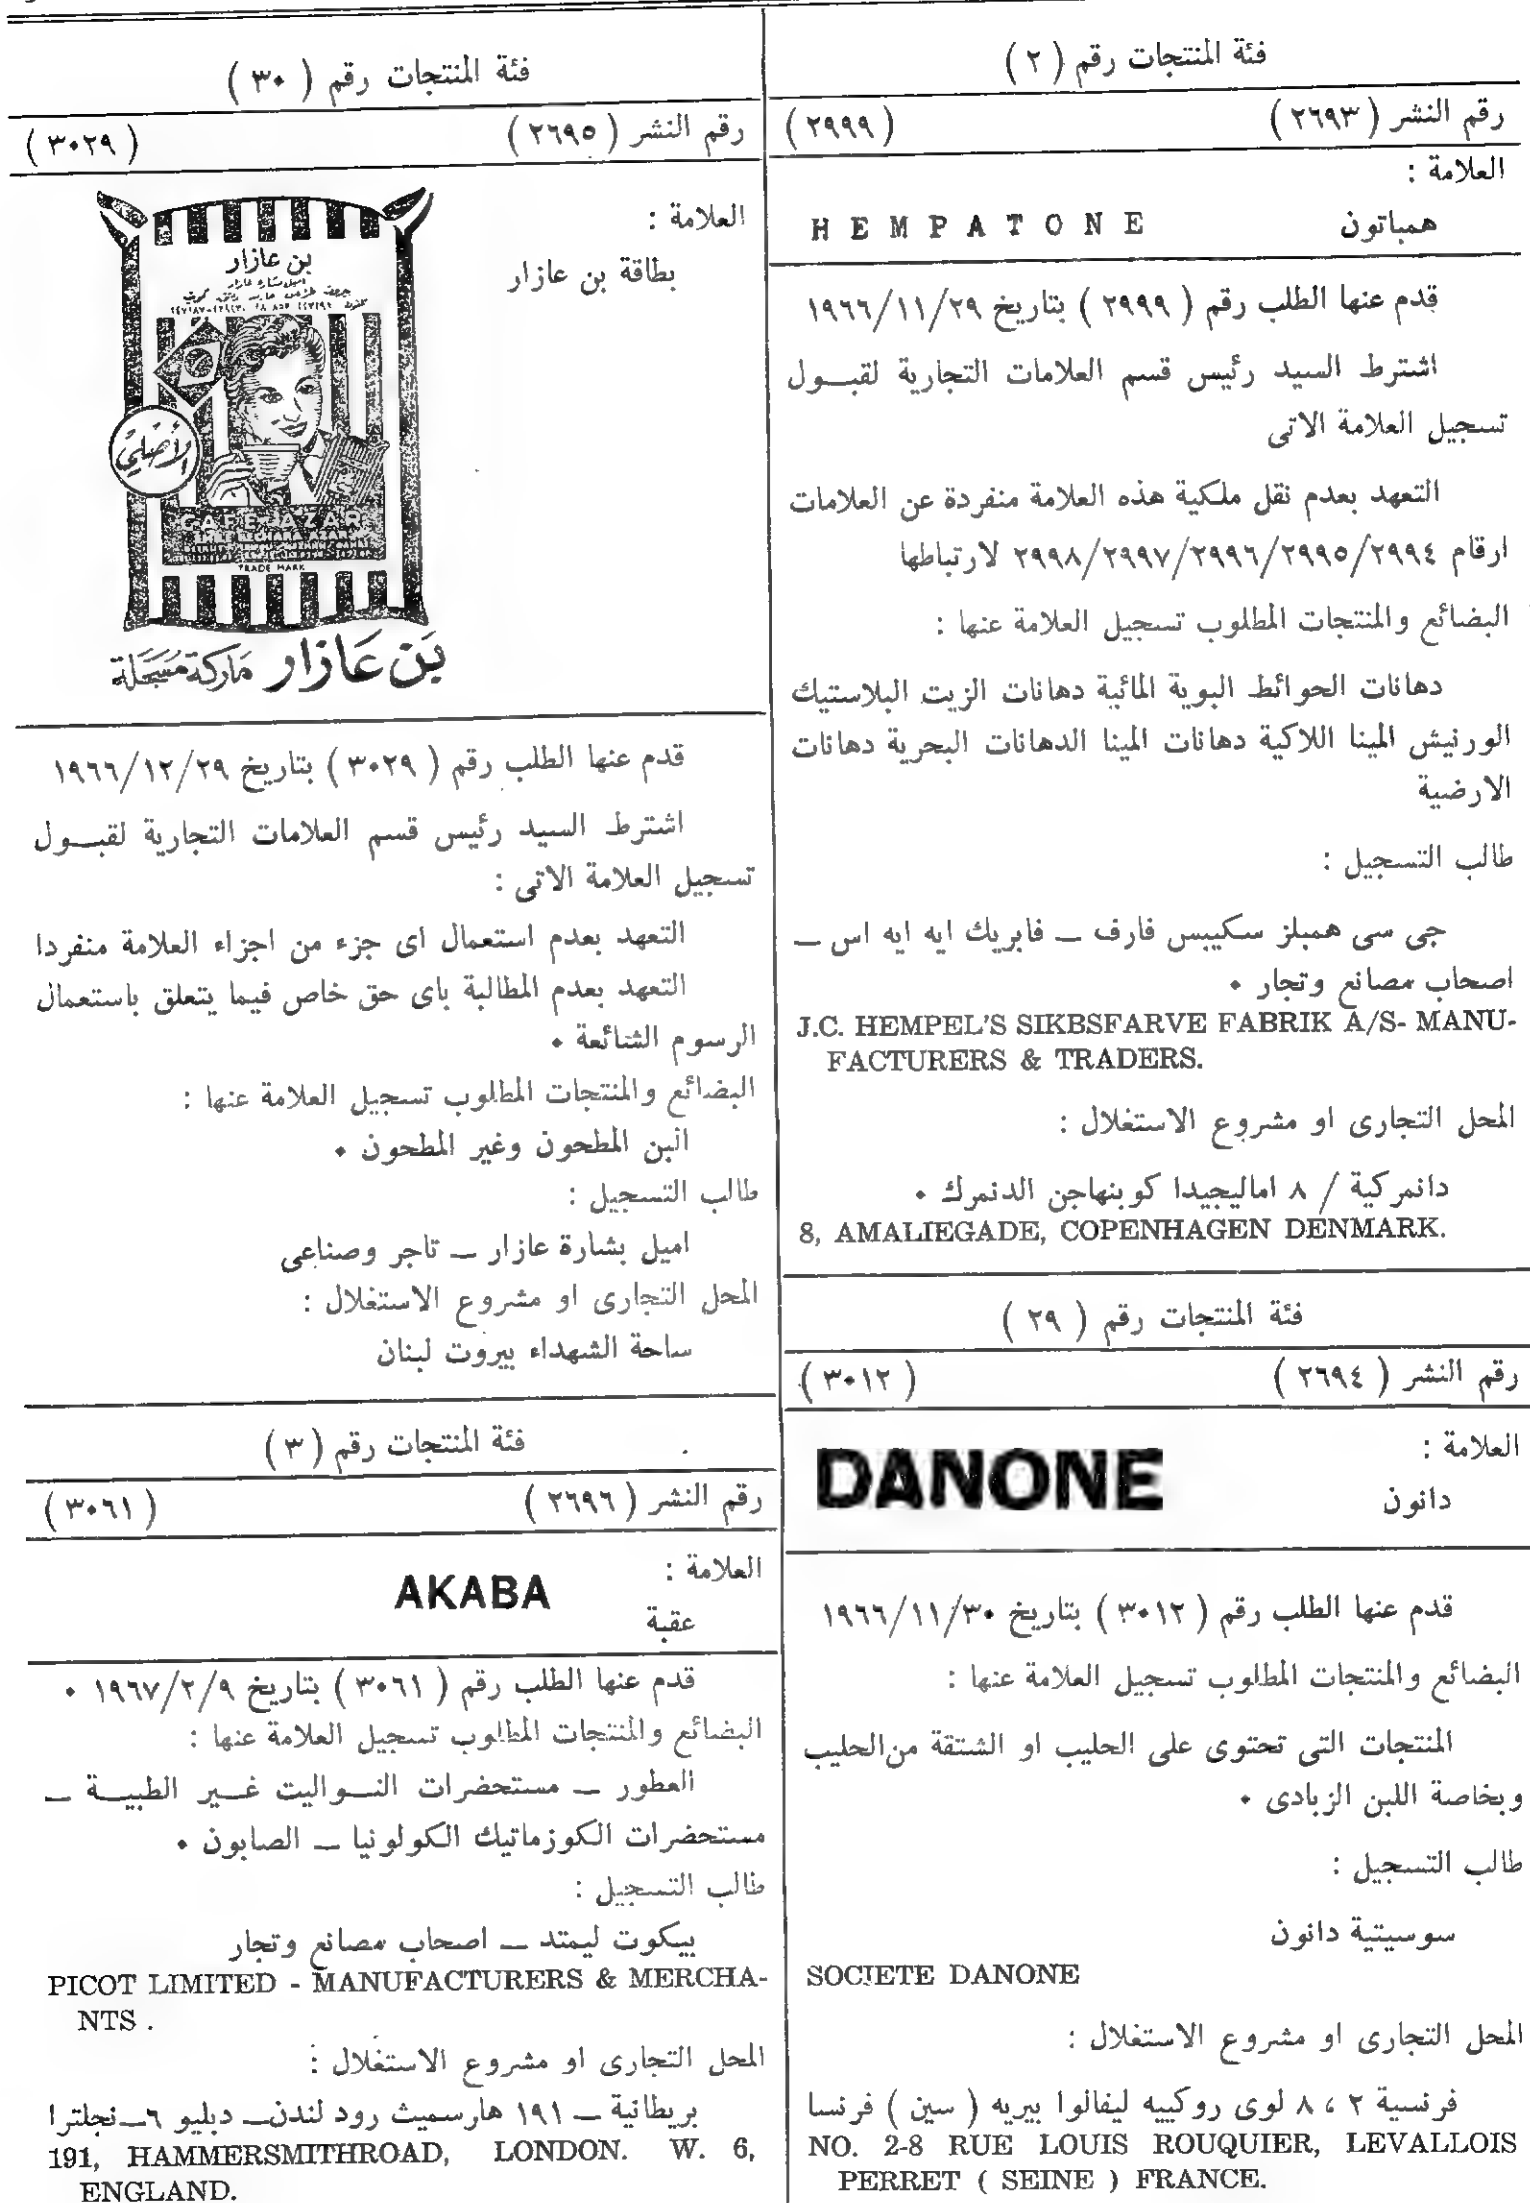 فئة المنتجات رقم ( ٢ )
رقم النشر ( ٢٦٩٣ ) ( ٢٩٩٩ )
العلامة :
همباتون HEMPATONE
قدم عنها الطلب رقم ( ٢٩٩٩ ) بتاريخ ١٩٦٦/١١/٢٩
اشترط السيد رئيس قسم العلامات التجارية لقبــول
تسجيل العلامة الاتى
التعهد بعدم نقل ملكية هذه العلامة منفردة عن العلامات
ارقام ٢٩٩٨/٢٩٩٧/٢٩٩٦/٢٩٩٥/٢٩٩٤ لارتباطها
البضائع والمنتجات المطلوب تسجيل العلامة عنها :
دهانات الحوائط البوية المائية دهانات الزيت البلاستيك
الورنيش المينا اللاكية دهانات المينا الدهانات البحرية دهانات
الارضية
طالب التسجيل :
جى سى همبلز سكيبس فارف ــ فابريك ايه ايه اس ــ
اصحاب مصانع وتجار ٠
J.C. HEMPEL'S SIKBSFARVE FABRIK A/S- MANU-
FACTURERS & TRADERS.
المحل التجارى او مشروع الاستغلال :
دانمركية / ٨ اماليجيدا كوبنهاجن الدنمرك ٠
8, AMALIEGADE, COPENHAGEN DENMARK.
فئة المنتجات رقم ( ٢٩ )
رقم النشر ( ٢٦٩٤ ) ( ٣٠١٢ )
العلامة :
دانون DANONE
قدم عنها الطلب رقم ( ٣٠١٢ ) بتاريخ ١٩٦٦/١١/٣٠
البضائع والمنتجات المطلوب تسجيل العلامة عنها :
المنتجات التى تحتوى على الحليب او الشتقة من الحليب
وبخاصة اللبن الزبادى ٠
طالب التسجيل :
سوسيتية دانون
SOCIETE DANONE
المحل التجارى او مشروع الاستغلال :
فرنسية ٢ ، ٨ لوى روكييه ليفالوا بيريه ( سين ) فرنسا
NO. 2-8 RUE LOUIS ROUQUIER, LEVALLOIS
PERRET ( SEINE ) FRANCE.
فئة المنتجات رقم ( ٣٠ )
رقم النشر ( ٢٦٩٥ ) ( ٣٠٢٩ )
العلامة :
بطاقة بن عازار
بن عازار
الأصلي
CAFE AZAR
TRADE MARK
بن عازار ماركة مسجلة
قدم عنها الطلب رقم ( ٣٠٢٩ ) بتاريخ ١٩٦٦/١٢/٢٩
اشترط السيد رئيس قسم العلامات التجارية لقبــول
تسجيل العلامة الاتى :
التعهد بعدم استعمال اى جزء من اجزاء العلامة منفردا
التعهد بعدم المطالبة باى حق خاص فيما يتعلق باستعمال
الرسوم الشائعة ٠
البضائع والمنتجات المطلوب تسجيل العلامة عنها :
البن المطحون وغير المطحون ٠
طالب التسجيل :
اميل بشارة عازار ــ تاجر وصناعى
المحل التجارى او مشروع الاستغلال :
ساحة الشهداء بيروت لبنان
فئة المنتجات رقم ( ٣ )
رقم النشر ( ٢٦٩٦ ) ( ٣٠٦١ )
العلامة :
عقبة AKABA
قدم عنها الطلب رقم ( ٣٠٦١ ) بتاريخ ١٩٦٧/٢/٩ ٠
البضائع والمنتجات المطلوب تسجيل العلامة عنها :
العطور ــ مستحضرات التــواليت غــير الطبيــة ــ
مستحضرات الكوزماتيك الكولونيا ــ الصابون ٠
طالب التسجيل :
بيكوت ليمتد ــ اصحاب مصانع وتجار
PICOT LIMITED - MANUFACTURERS & MERCHA-
NTS .
المحل التجارى او مشروع الاستغلال :
بريطانية ــ ١٩١ هارسميث رود لندن ــ دبليو ٦ ــ نجلترا
191, HAMMERSMITHROAD, LONDON. W. 6,
ENGLAND.